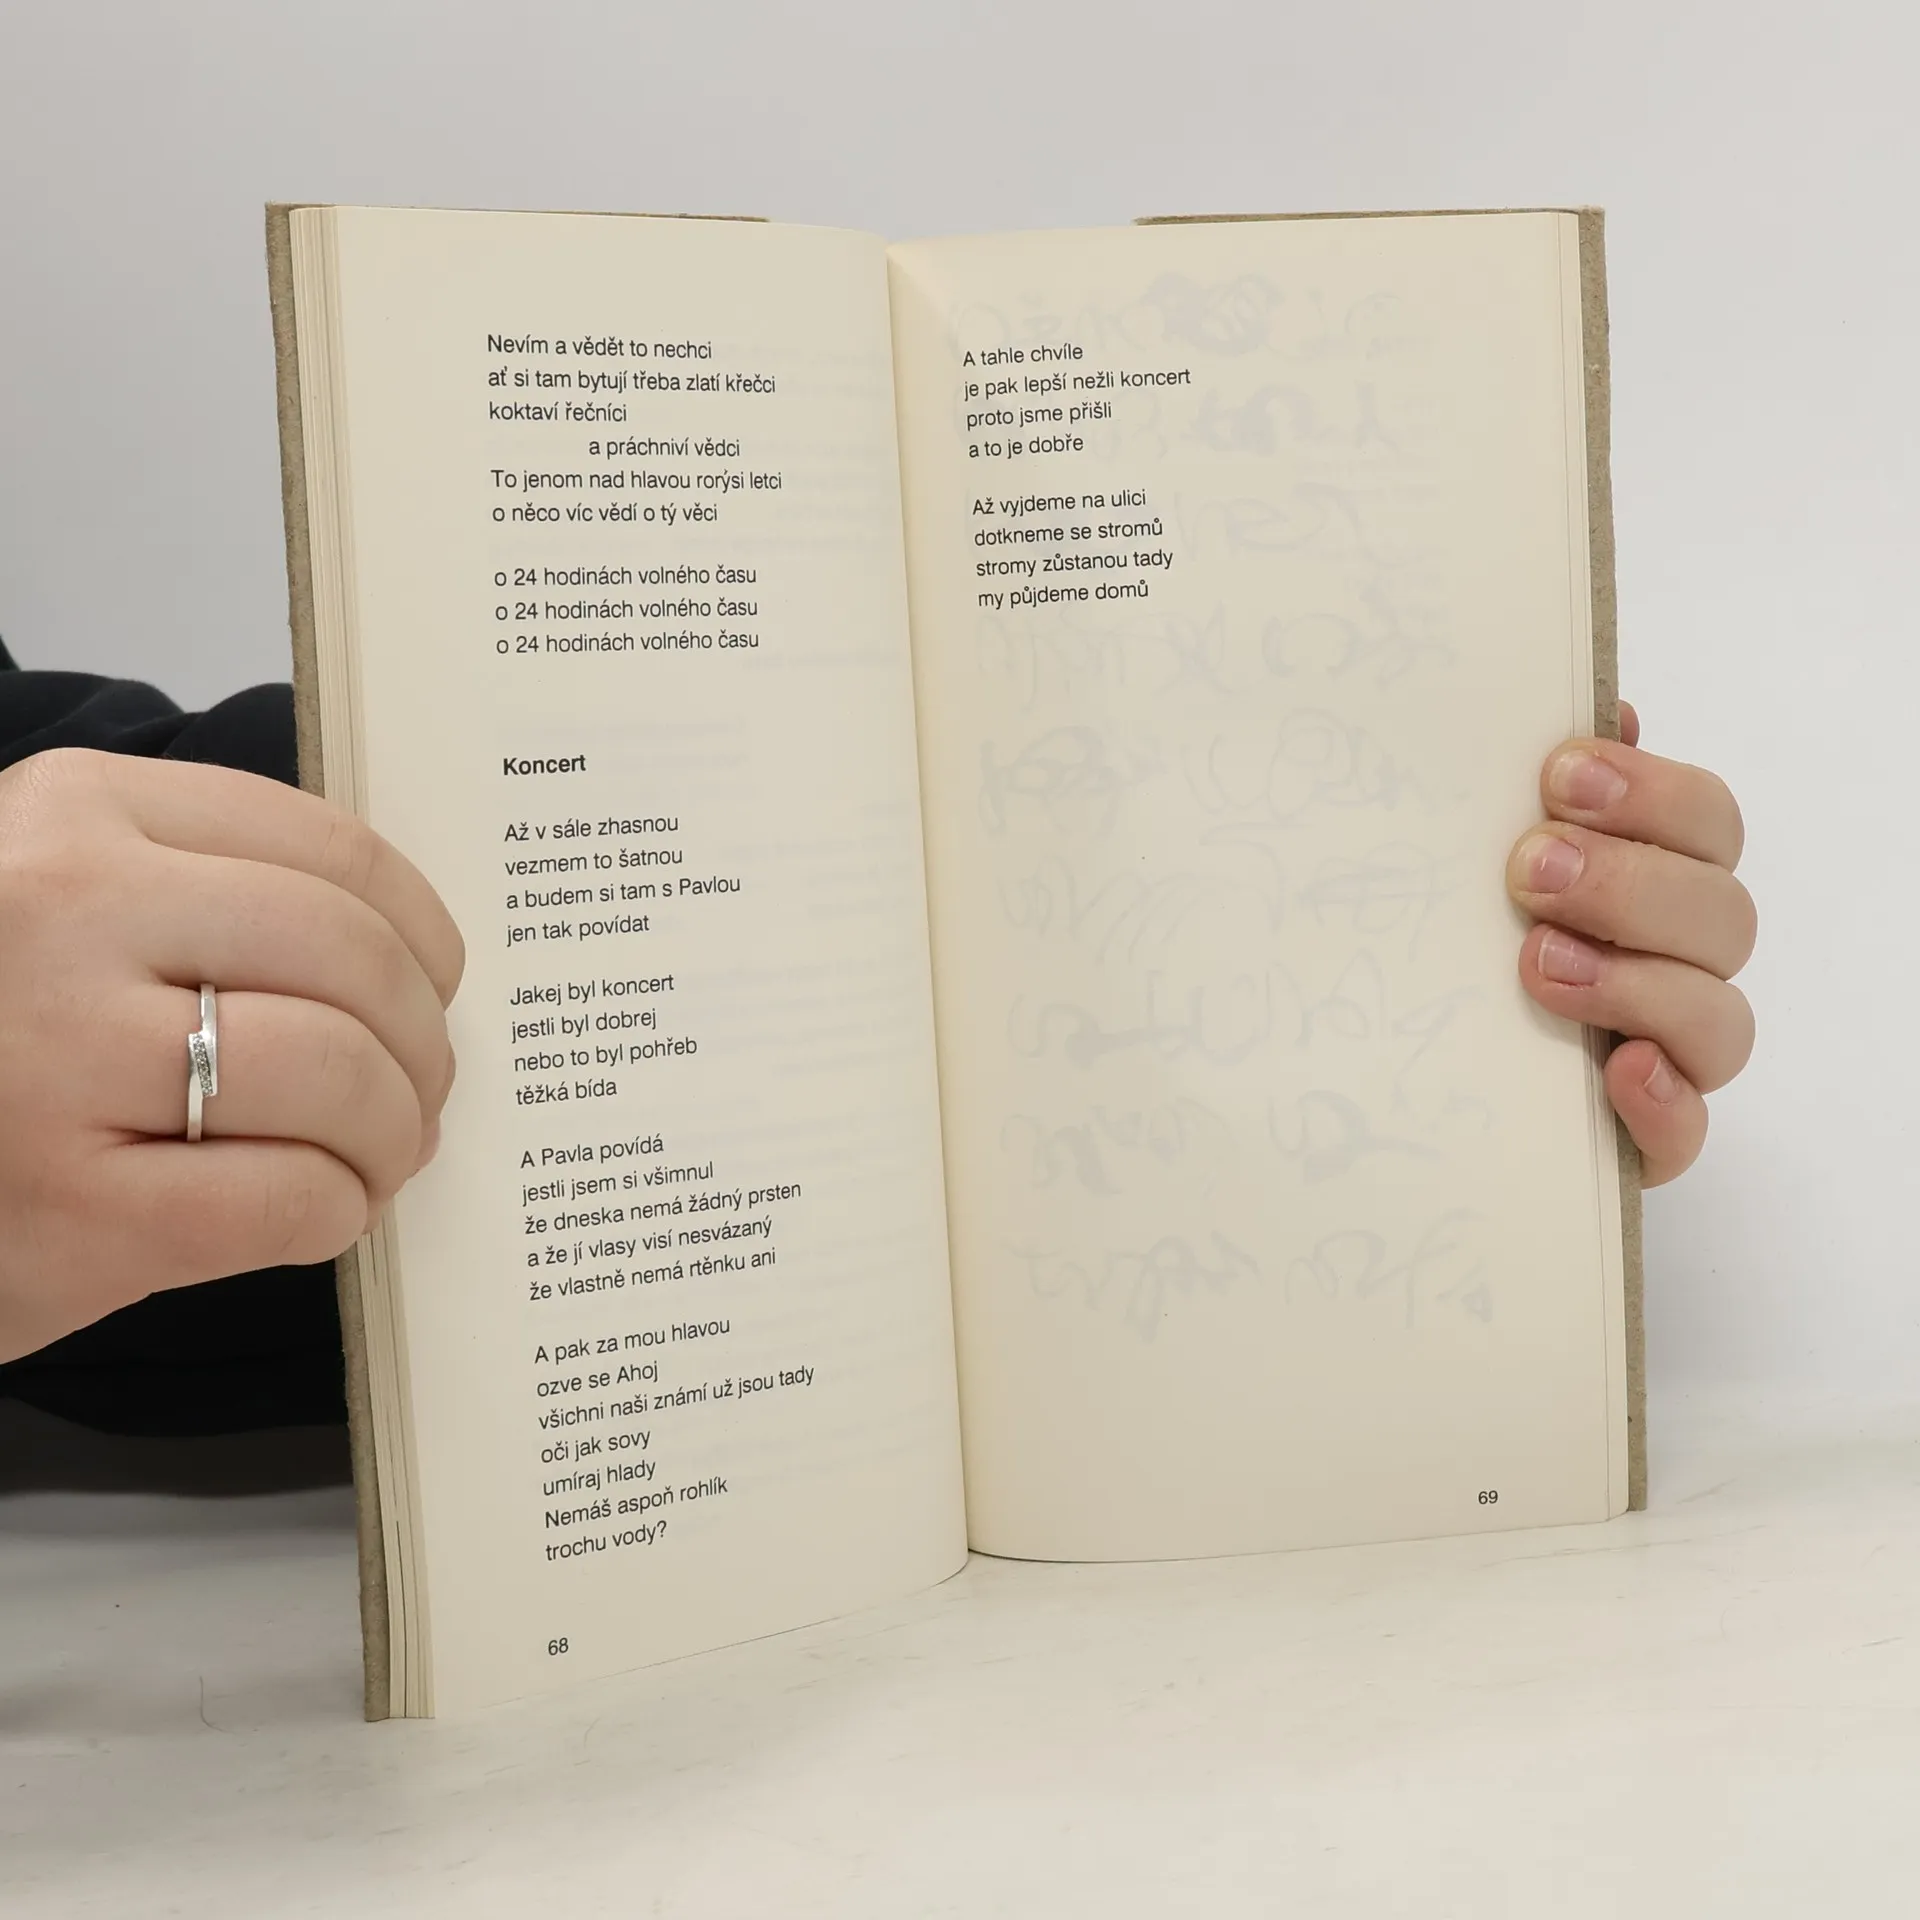 Nevím a vědět to nechci
ať si tam bytují třeba zlatí křečci
koktaví řečníci
a práchniví vědci
To jenom nad hlavou rorýsi letci
o něco víc vědí o tý věci
o 24 hodinách volného času
o 24 hodinách volného času
o 24 hodinách volného času
Koncert
Až v sále zhasnou
vezmem to šatnou
a budem si tam s Pavlou
jen tak povídat
Jakej byl koncert
jestli byl dobrej
nebo to byl pohřeb
těžká bída
A Pavla povídá
jestli jsem si všimnul
že dneska nemá žádný prsten
a že jí vlasy visí nesvázaný
že vlastně nemá rtěnku ani
A pak za mou hlavou
ozve se Ahoj
všichni naši známí už jsou tady
oči jak sovy
umíraj hlady
Nemáš aspoň rohlík
trochu vody?
68
A tahle chvíle
je pak lepší nežli koncert
proto jsme přišli
a to je dobře
Až vyjdeme na ulici
dotkneme se stromů
stromy zůstanou tady
my půjdeme domů
69